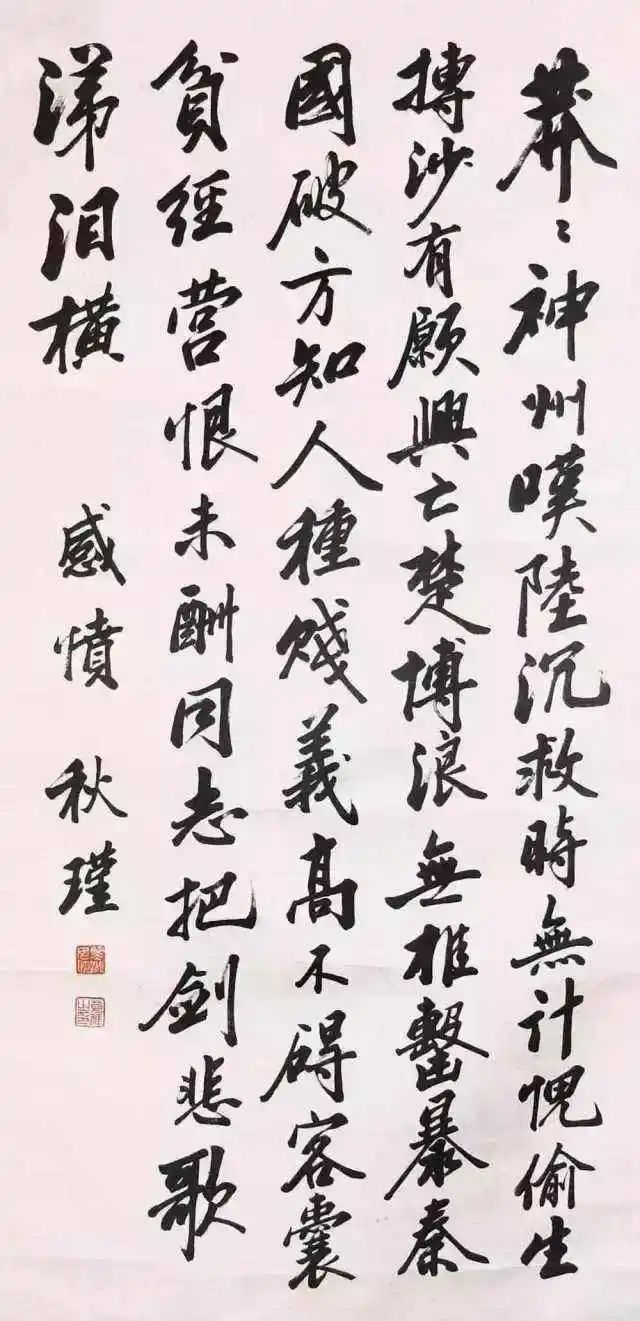 莽〻神州嘆陸沉救時無計愧偷生
摶沙有願興亡楚博浪無椎擊暴秦
國破方知人種賤義高不碍客囊
貧經营恨未酬同志把劍悲歌
涕泪橫
感憤 秋瑾